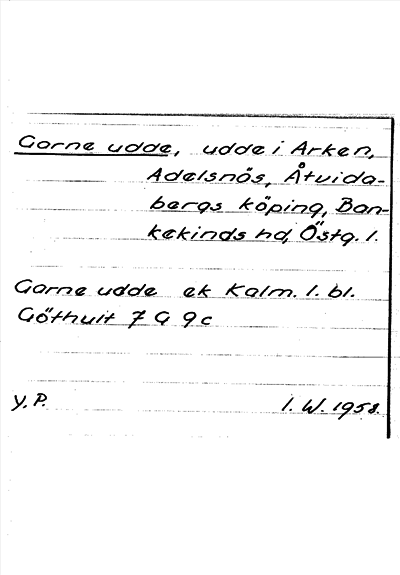 Garne udde, udde i Arken,
Adelsnäs, Åtvida-
bergs köping, Ban-
kekinds hd, Östg. l.
Garne udde ek Kalm. l. bl.
Göthult 7 G 9 c
Y. P. I. W. 1958.